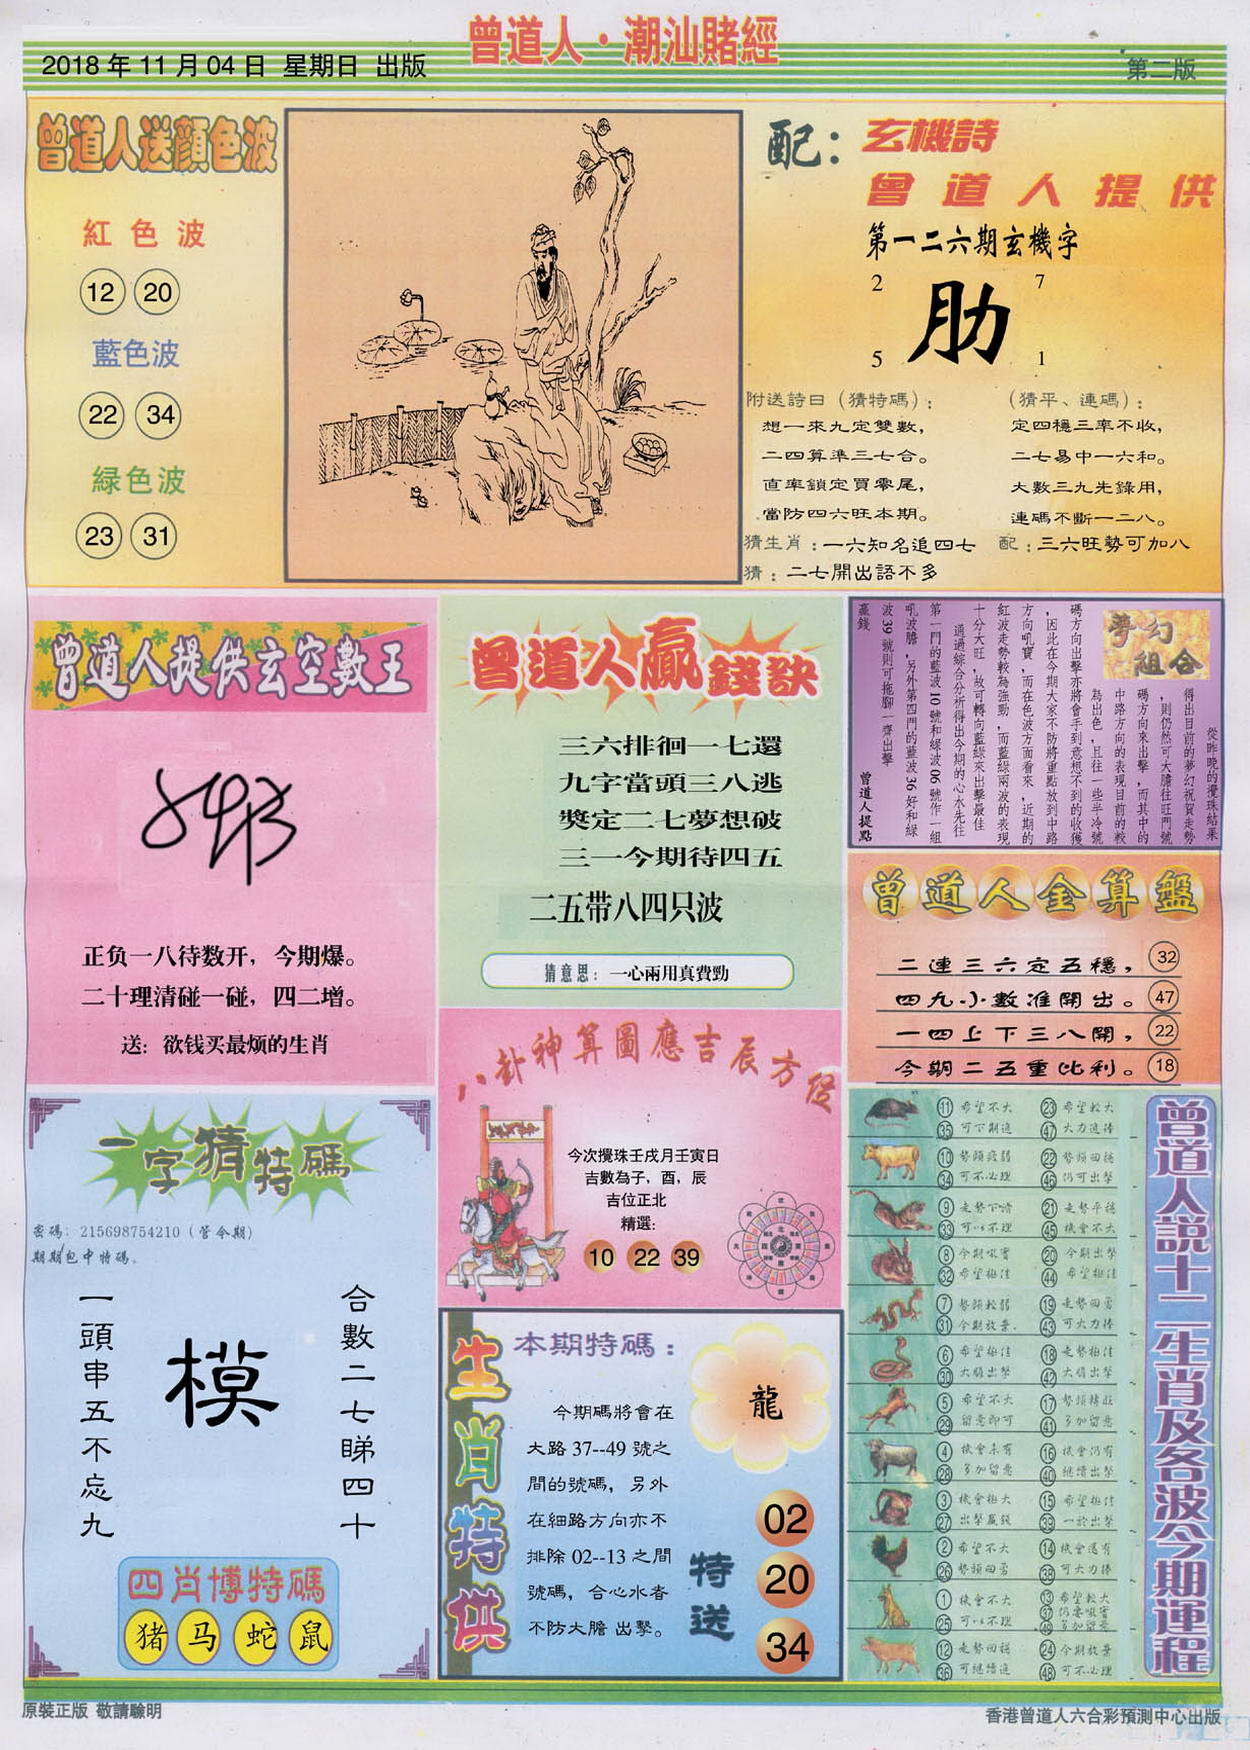 曾道人·潮汕賭經
2018 年 11 月 04 日 星期日 出版
第二版
曾道人送顔色波
紅色波
12 20
藍色波
22 34
緑色波
23 31
配:玄機詩
曾道人提供
第一二六期玄機字
2 7
肋
5 1
附送詩曰(猜特碼):
想一來九定雙數,
二四算準三七合。
直率鎖定買零尾,
當防四六旺本期。
(猜平、連碼):
定四穩三率不收,
二七易中一六和。
大數三九先錄用,
連碼不斷一二八。
猜生肖:一六知名追四七 配:三六旺勢可加八
猜:二七開出語不多
曾道人提供玄空數王
正负一八待数开,今期爆。
二十理清碰一碰,四二增。
送:欲钱买最烦的生肖
曾道人贏錢訣
三六排徊一七還
九字當頭三八逃
獎定二七夢想破
三一今期待四五
二五带八四只波
猜意思:一心兩用真費勁
夢幻組合
從昨晚的攪珠結果
得出目前的夢幻祝賀走勢
,則仍然可大膽往旺門號
碼方向來出擊,而其中的
中路方向的表現目前的較
為出色,且往一些半冷號
碼方向出擊亦將會手到意想不到的收獲
,因此在今期大家不防將重點放到中路
方向吼寶,而在色波方面看來,近期的
紅波走勢較為強勁,而藍緑兩波的表現
十分大旺,故可轉向藍緑來出擊最佳
通過綜合分析得出今期的心水先往
第一門的藍波 10 號和緑波 06 號作一組
吼波膽,另外第四門的藍波 36 好和緑
波 39 號則可拖腳一齊出擊
贏錢
曾道人提點
曾道人金算盤
二連三六定五穩, 32
四九小數准開出。 47
一四上下三八開, 22
今期二五重比利。 18
一字猜特碼
密碼:215698754210(管今期)
期期包中特碼。
合數二七睇四十
模
一頭串五不忘九
四肖博特碼
猪 马 蛇 鼠
八卦神算圖應吉辰方位
今次攪珠壬戌月壬寅日
吉數為子,酉,辰
吉位正北
精選:
10 22 39
生肖特供
本期特碼:
龍
今期碼將會在
大路 37--49 號之
間的號碼,另外
在細路方向亦不
排除 02--13 之間
號碼,合心水者
不防大膽 出擊。
特送
02
20
34
曾道人説十二生肖及各波今期運程
11 希望不大 23 希望較大
35 可下期追 47 大力追捧
10 勢頭疲弱 22 勢頭回穩
34 可不必理 46 仍可出擊
9 走勢下滑 21 走勢平穩
33 可以不理 45 機會不大
8 今期吼實 20 今期出擊
32 希望極佳 44 希望極佳
7 勢頭較弱 19 走勢回勇
31 今期放棄. 43 可大力捧
6 希望極佳 18 走勢極佳
30 大膽出擊 42 大膽出擊
5 希望不大 17 勢頭轉旺
29 留意即可 41 多加留意
4 機會未有 16 機會仍有
28 多加留意 40 繼續出擊
3 機會極大 15 希望極佳
27 出擊贏錢 39 一於出擊
2 希望不大 14 機會還有
26 勢頭回勇 38 可大力捧
1 機會不大 13 希望較大
25 可以不理 37 仍要吼實
49 多加留意
12 走勢回穩 24 今期放棄
36 可繼續追 48 可不必理
原裝正版 敬請驗明
香港曾道人六合彩預測中心出版